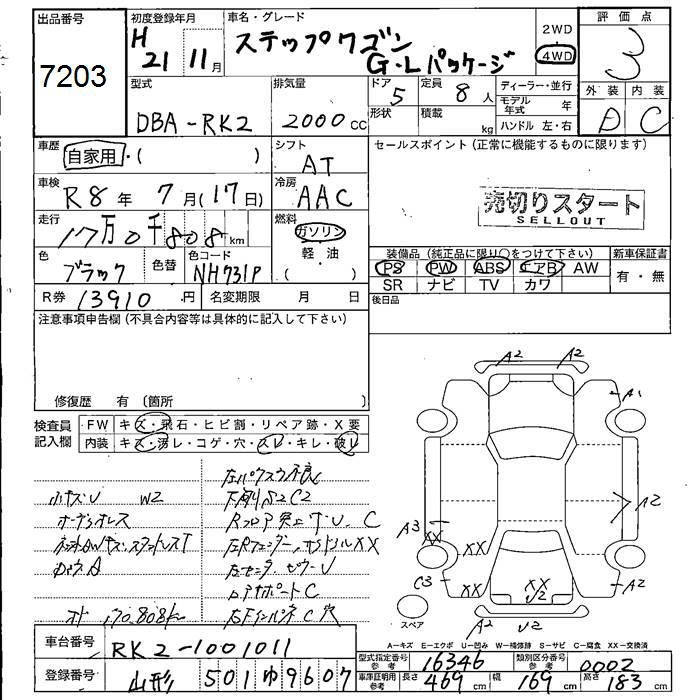 出品番号
7203
初度登録年月
H 21 11月
車名・グレード
ステップワゴン
G・Lパッケージ
2WD
4WD
評価点
3
外装 内装
D C
型式
DBA-RK2
排気量
2000cc
ドア
5
形状
定員
8人
積載
kg
ディーラー・並行
モデル年式 年
ハンドル 左・右
車歴
自家用・( )
シフト
AT
セールスポイント(正常に機能するものに限ります)
売切りスタート
SELLOUT
車検
R8年 7月(17日)
冷房
AAC
走行
17万0千808km
燃料
ガソリン
軽・油
( )
色
ブラック
色替
色コード
NH731P
装備品(純正品に限り○をつけて下さい)
PS PW ABS エアB AW
SR ナビ TV カワ
新車保証書
有・無
後日品
R券 13910円
名変期限 月 日
注意事項申告欄(不具合内容等は具体的に記入して下さい)
修復歴 有(箇所 )
検査員
記入欄
FW キズ・飛石・ヒビ割・リペア跡・X要
内装 キズ・汚レ・コゲ・穴・スレ・キレ・破レ
左パワスラ不良
小キズU W2
下廻りS2C2
オーディオレス
Rフロア突上ゲU、C
ロウA
オド 170,808k
A2 A2
A1
A2
A3
XX
XX XX
C3
XX
XX
U2
A2
A2 U2
スペア
A-キズ E-エクボ U-凹み W-補修跡 S-サビ C-腐食 XX-交換済
車台番号
RK2-1001011
登録番号
山形 501 ゆ 9607
型式指定番号
参考
16346
類別区分番号
参考
0002
車庫証明用
参考
長さ 469cm 幅 169cm 高さ 183cm